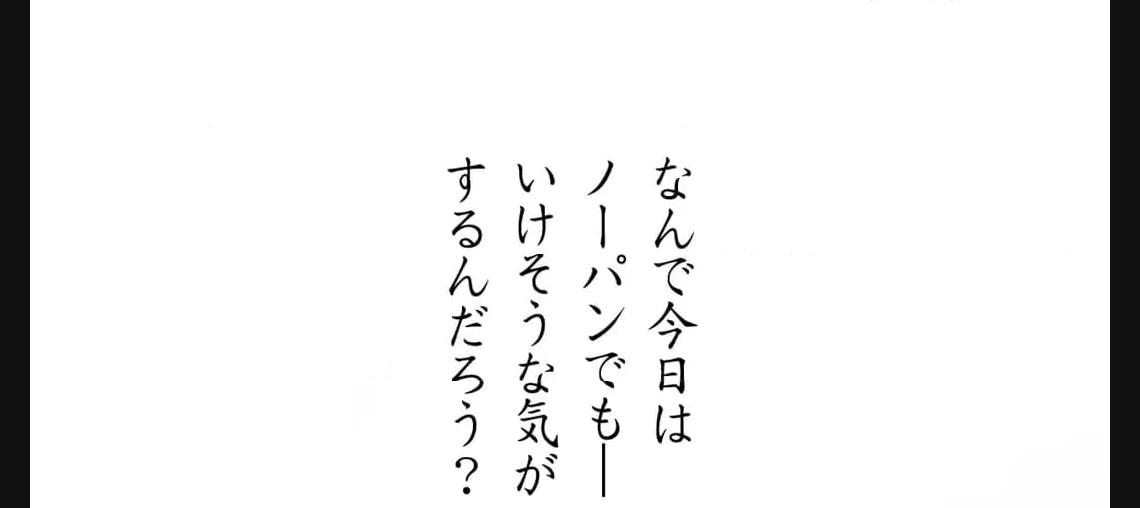 なんで今日は
ノーパンでも―
いけそうな気が
するんだろう?